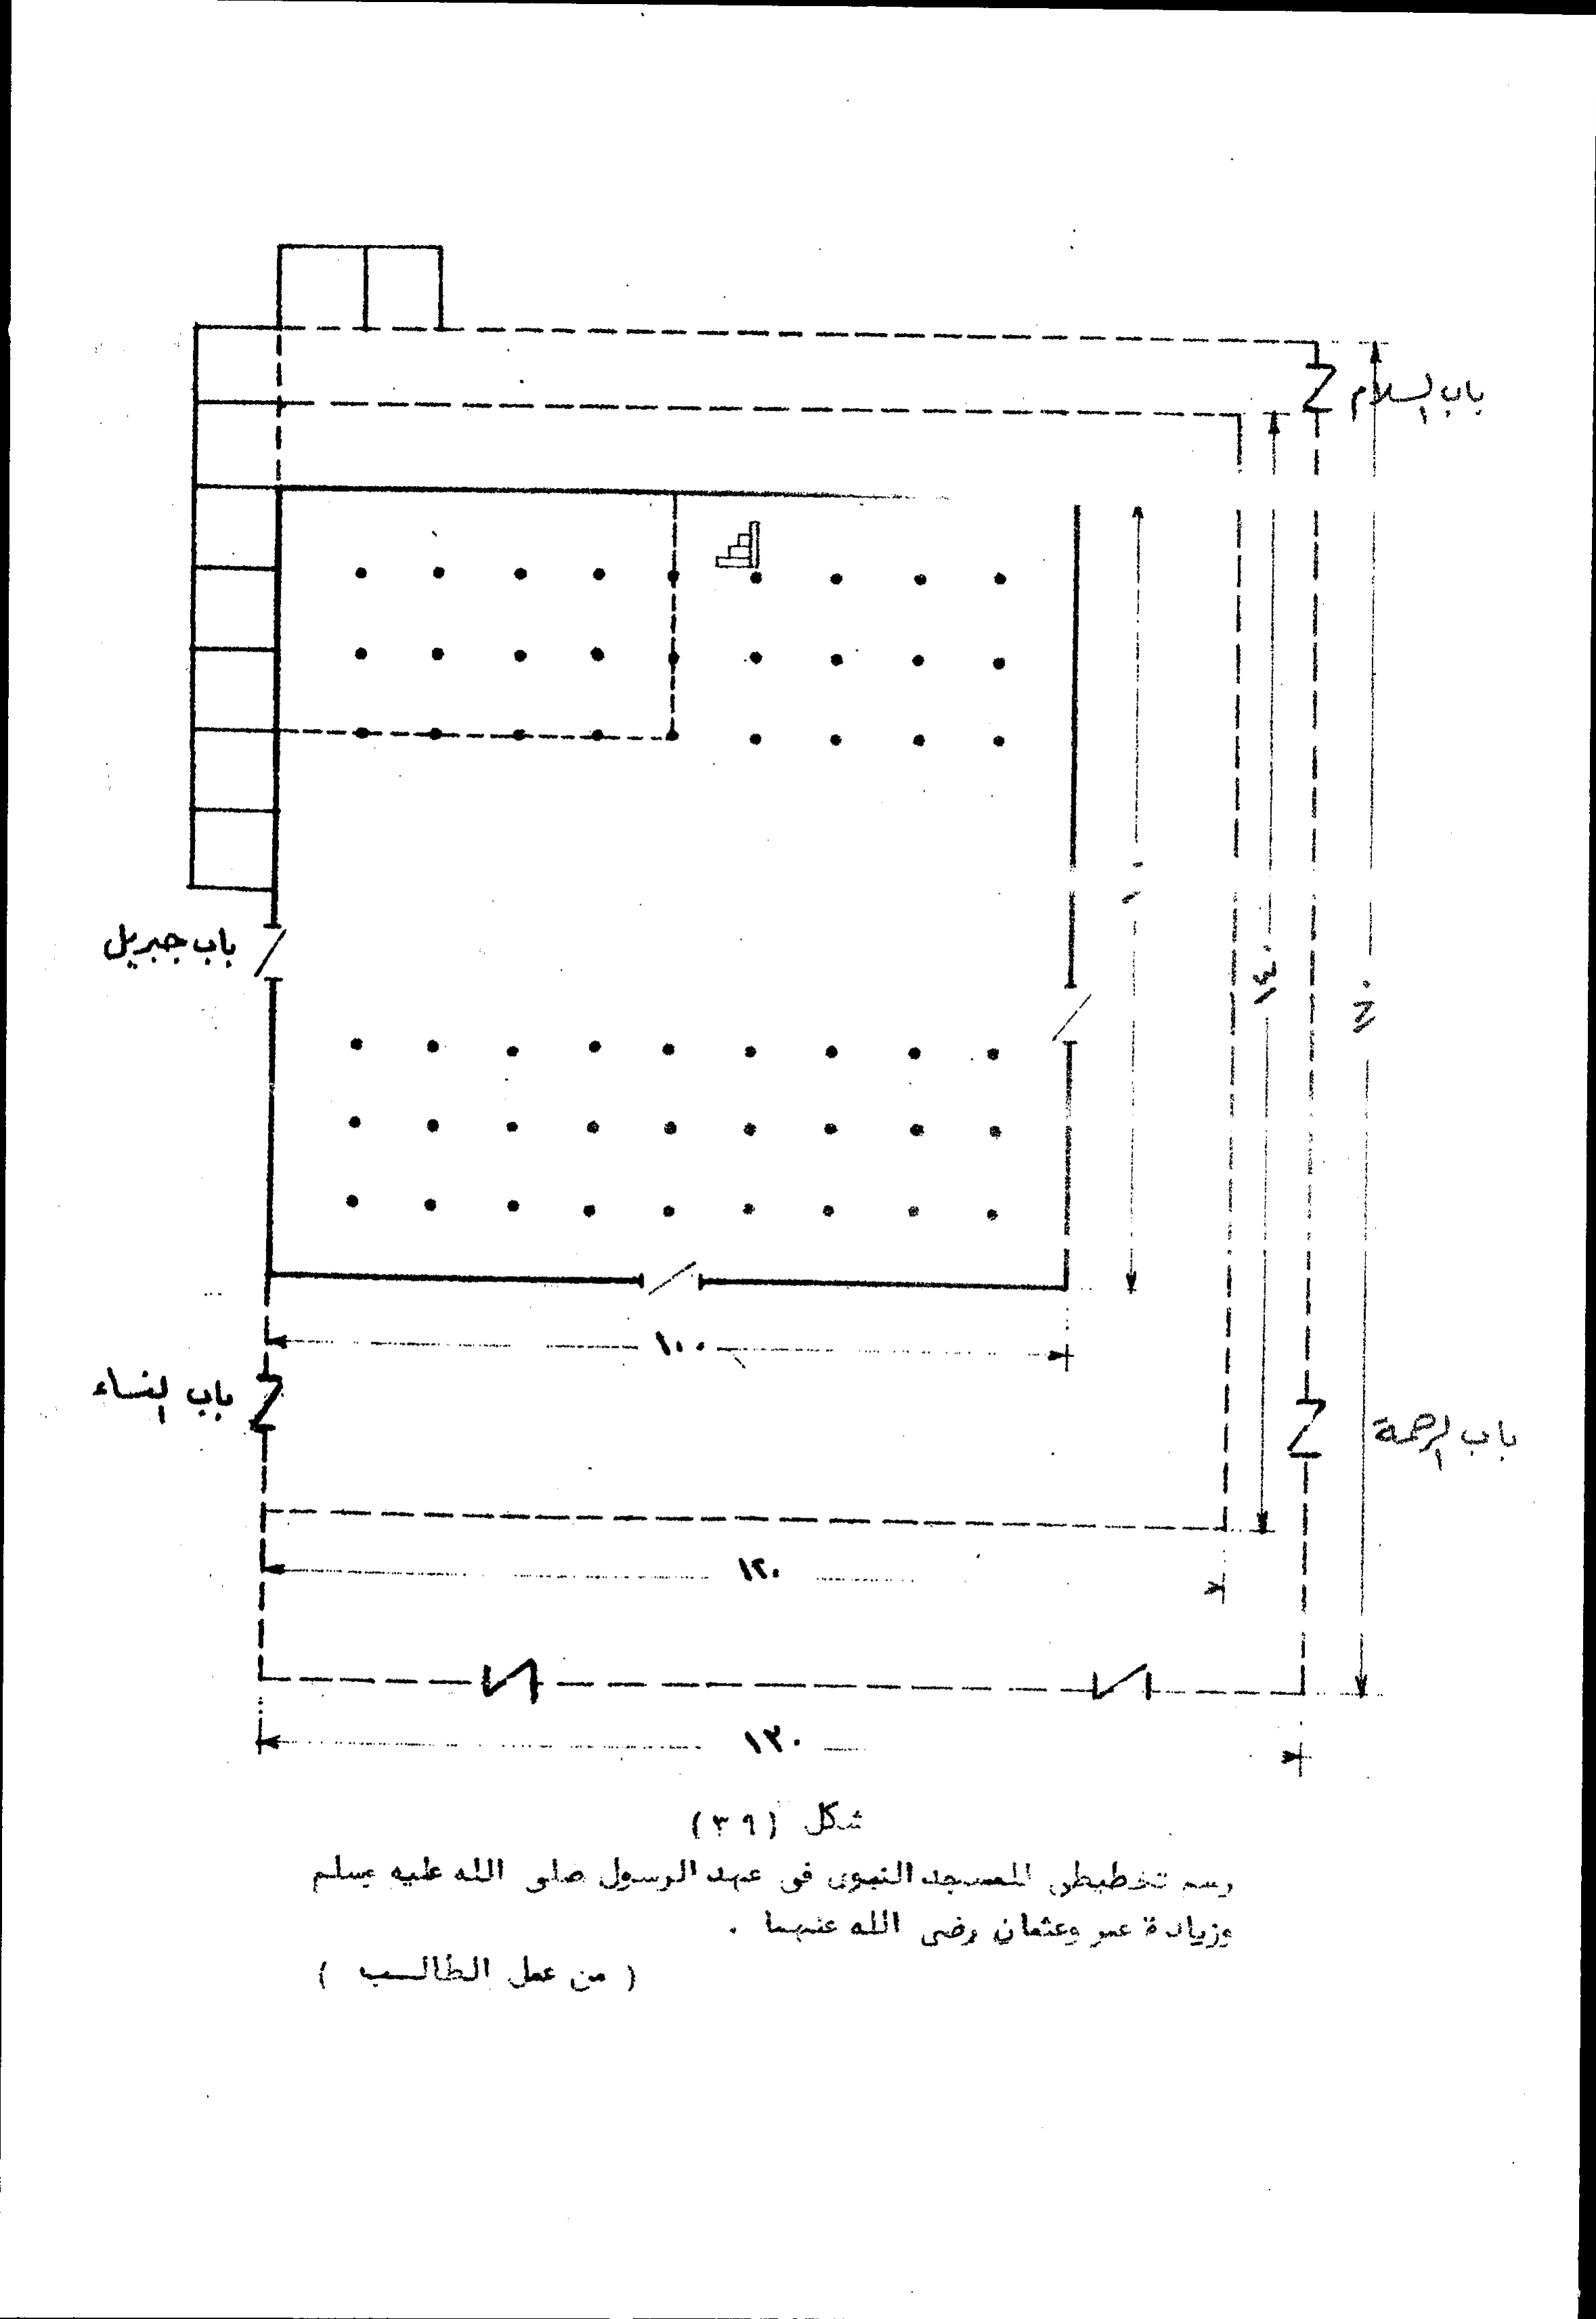 باب السلام
باب جبريل
١٤٠
١٠٠
باب النساء
باب الرحمة
١٢٠
١٣٠
شكل (٣٩)
رسم تخطيطى للمسجد النبوى فى عهد الرسول صلى الله عليه وسلم
وزيادة عمر وعثمان رضى الله عنهما .
( من عمل الطالب )